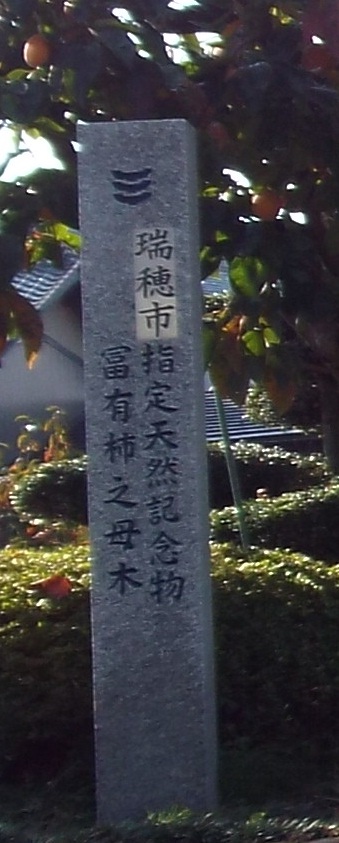 瑞穂市指定天然記念物
冨有柿之母木